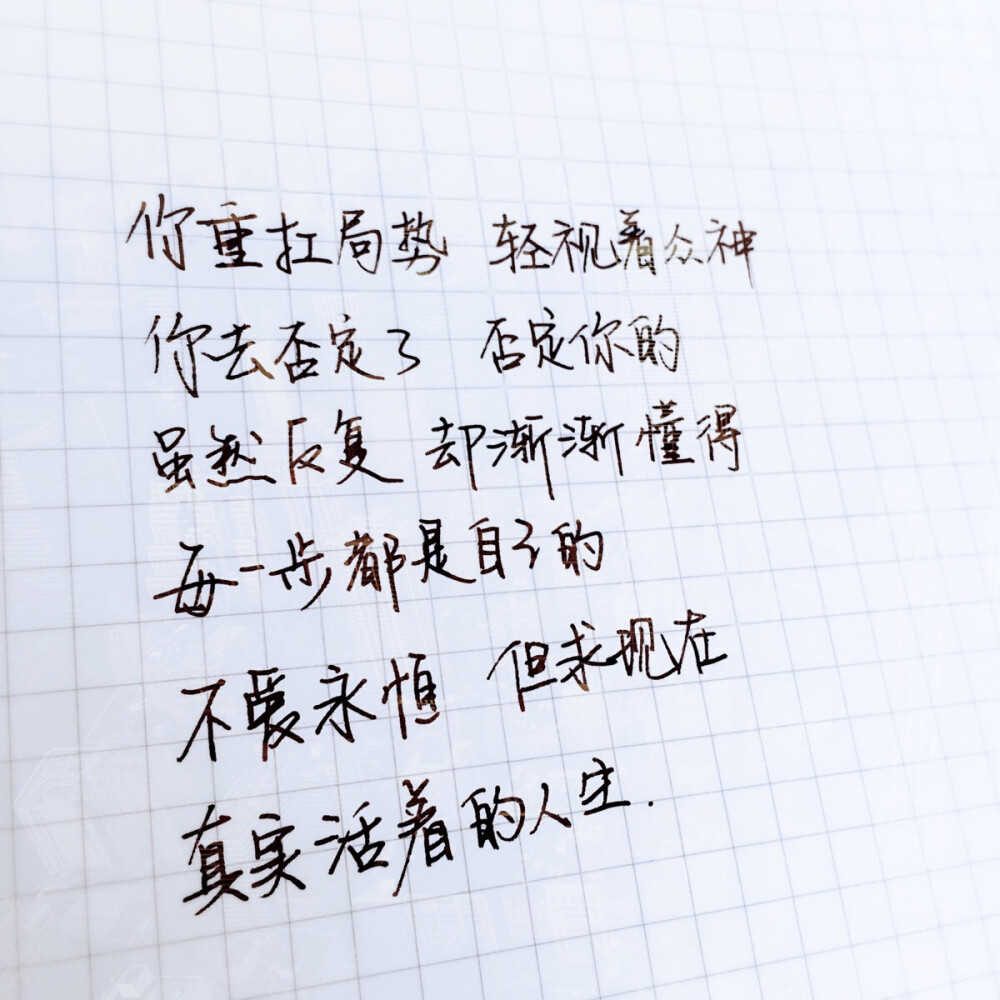 你重扛局势 轻视着众神
你去否定了 否定你的
虽然反复 却渐渐懂得
每一步都是自己的
不爱永恒 但求现在
真实活着的人生.